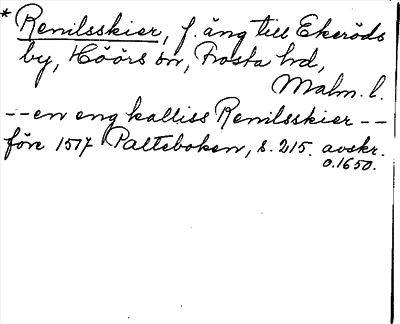 * Renilsskier, f. äng till Ekeröds
by, Höörs sn, Frosta hd,
Malm. l.
-- en eng kalliss Renilsskier --
före 1517 Palteboken, s. 215. avskr.
o. 1650.